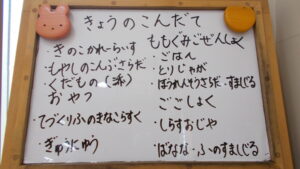 きょうのこんだて
・きのこかれーらいす
・もやしのこんぶさらだ
・くだもの（梨）
おやつ
てづくりふのきなこらすく
・ぎゅうにゅう
ももぐみごぜんしょく
・ごはん
・とりじゃが
・ほうれんそうさらだ・すましじる
ごごしょく
・しらすおじや
・ばなな・ふのすましじる